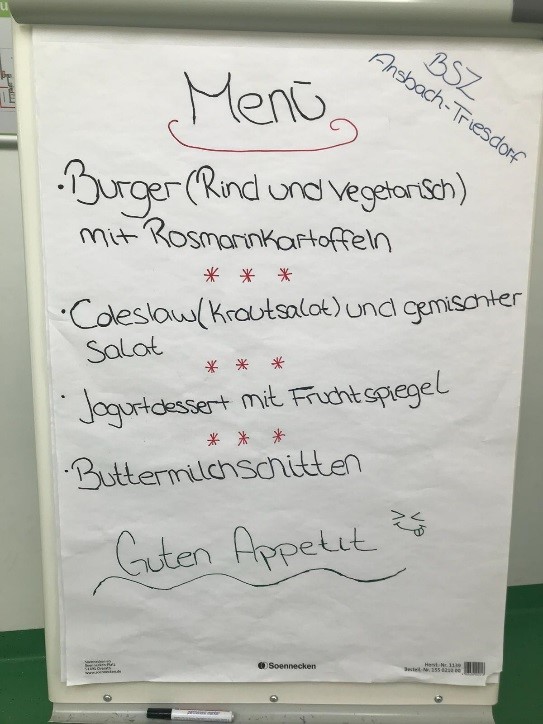 BSZ
Ansbach-Triesdorf
Menü
• Burger (Rind und vegetarisch)
mit Rosmarinkartoffeln
* * *
• Coleslaw (Krautsalat) und gemischter
Salat
* * *
• Jogurtdessert mit Fruchtspiegel
* * *
• Buttermilchschitten
Guten Appetit
Soennecken